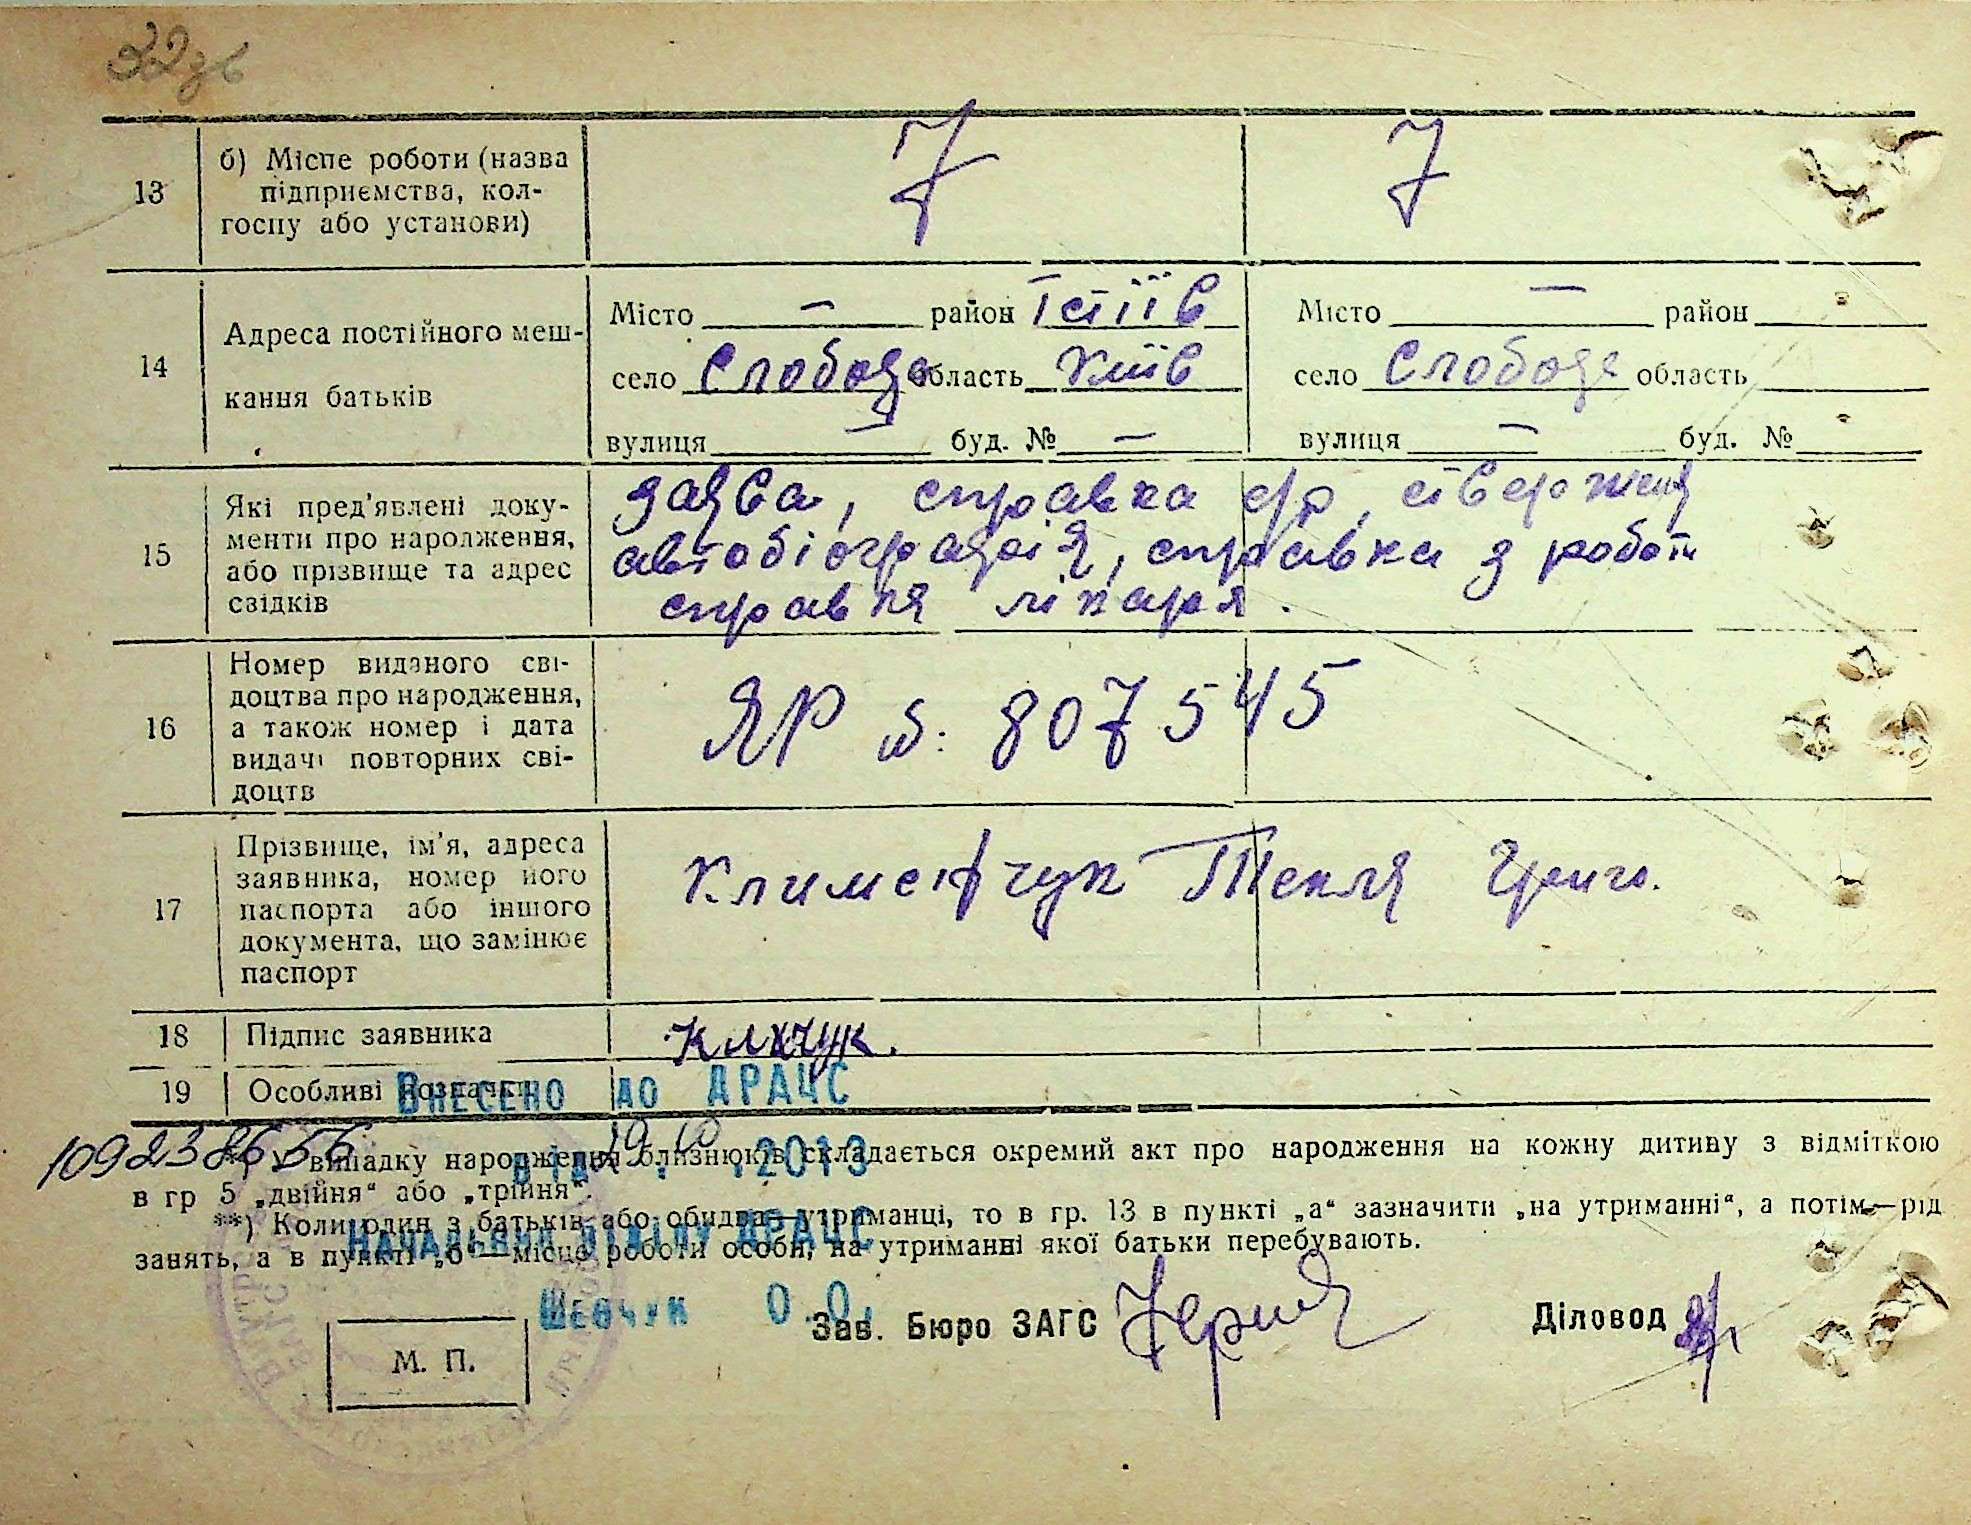 32зв
13
б) Місце роботи (назва
підприємства, кол-
госпу або установи)
14
Адреса постійного меш-
кання батьків
Місто — район Тетіїв
село Слобода область Київ
вулиця — буд. № —
Місто — район
село Слобода область
вулиця — буд. №
15
Які пред'явлені доку-
менти про народження,
або прізвище та адрес
свідків
заява, справка с/р, стверження
автобіографія, справка з роботи
справка лікаря.
16
Номер виданого сві-
доцтва про народження,
а також номер і дата
видачі повторних сві-
доцтв
ЯР № 807545
17
Прізвище, ім'я, адреса
заявника, номер його
паспорта або іншого
документа, що замінює
паспорт
Климейчук Текля Григо.
18
Підпис заявника
19
Особливі
Внесено до ДРАЦС
109238656
від 19.10.2013
*) У випадку народження близнюків складається окремий акт про народження на кожну дитину з відміткою
в гр 5 „двійня“ або „трійня“.
**) Коли один з батьків або обидва—утриманці, то в гр. 13 в пункті „а“ зазначити „на утриманні“, а потім—рід
занять, а в пункті „б“ — місце роботи особи, на утриманні якої батьки перебувають.
Начальник відділу ДРАЦС
Шевчук О.О.
Зав. Бюро ЗАГС
Діловод
М. П.